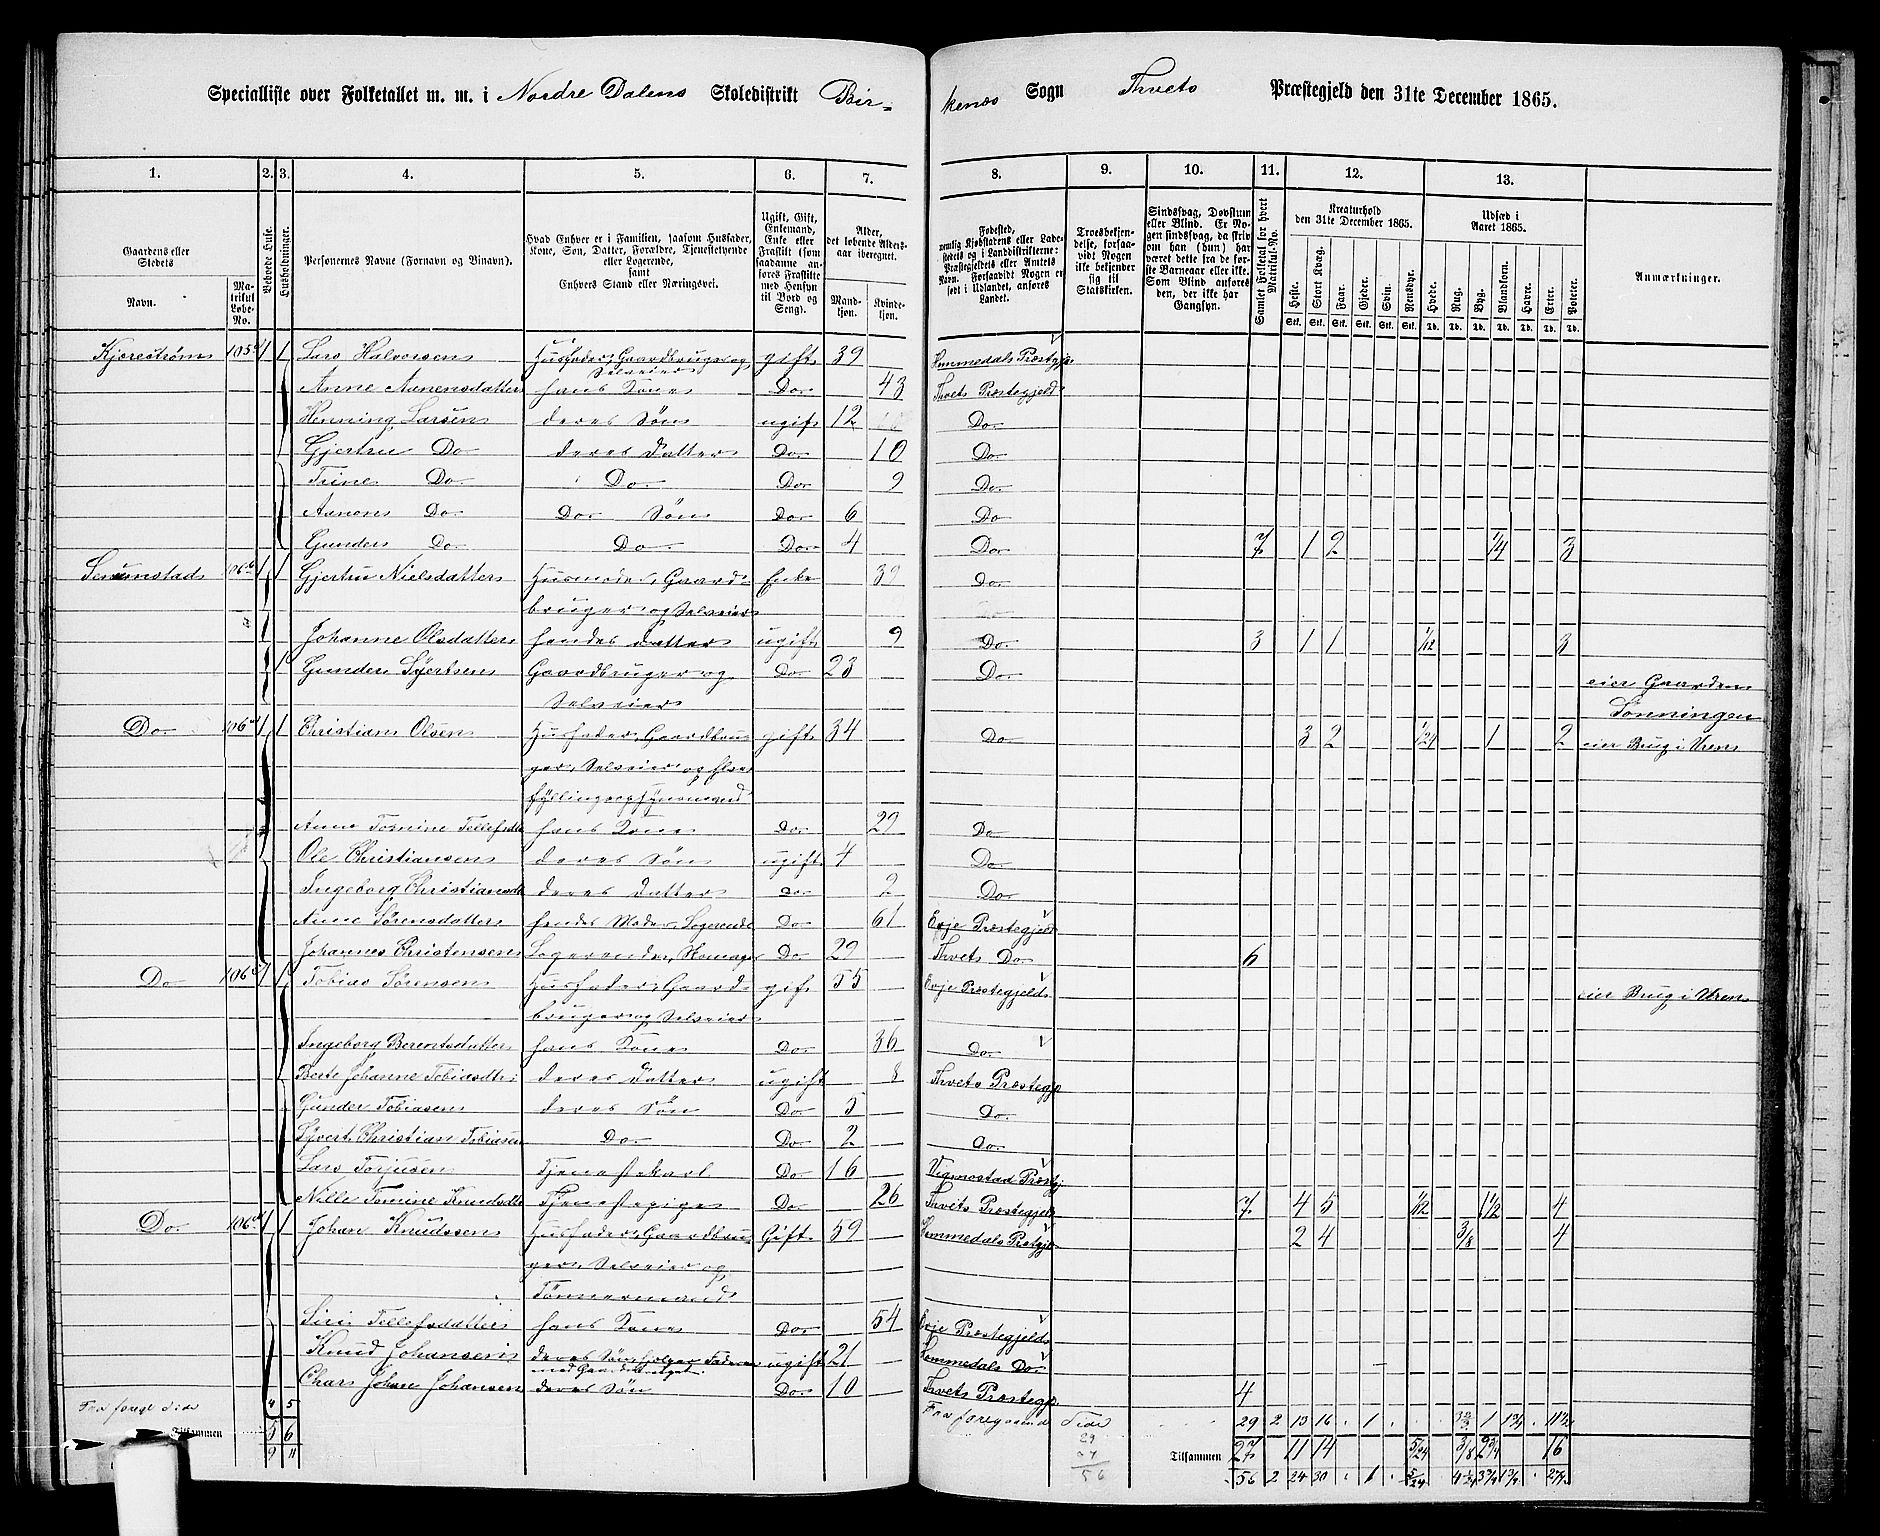 Specialliste over Folketallet m. m. i Nordre Dalens Skoledistrikt Bir-
kenæs Sogn Thvets Præstegjeld den 31te December 1865.
1. 2. 3. 4. 5. 6. 7. 8. 9. 10. 11. 12. 13.
Gaardens eller Stedets
Navn.
Matrikul Løbe-No.
Beboede Huse.
Husholdninger.
Personernes Navne (Fornavn og Tilnavn).
Hvad Enhver er i Familien, saasom Husfader, Kone, Søn, Datter, Forældre, Tjenestetyende eller Logerende, samt Enhvers Stand eller Næringsvei.
Ugift, Gift, Enkemand, Enke eller Fraskilt (som saadanne anføres Fraskilte med Hensyn til Bord og Seng).
Alder, det løbende Aldersaar iberegnet.
Mandkjøn. Kvindekjøn.
Fødested,
Troesbekjendelse, forsaavidt Nogen ikke bekjender sig til Statskirken.
Sindssvag, Døvstum eller Blind.
Samlet Folketal for hvert Matrikul-No.
Kreaturhold den 31te December 1865.
Heste. Stort Kvæg. Faar. Gjeder. Svin. Rensdyr.
Udsæd i Aaret 1865.
Hvede. Rug. Byg. Blandkorn. Havre. Erter. Poteter.
Anmærkninger.
Kjerestrøm 105 1 1 Lars Halvorsen Husfader, Gaardbruger og Selveier gift 39 Hommedals Præstgj
Anne Aanensdatter hans Kone Do 43 Thvets Præstegjeld
Henning Larsen deres Søn ugift 12 Do
Gjertru Do deres Datter Do 10 Do
Trine Do Do Do 9 Do
Aanen Do Do Søn Do 6 Do
Gunder Do Do Do 4 Do 7 1 2 1/4 3
Senumstad 106 1 1 Gjertru Nielsdatter Husmoder, Gaard- Enke 39 Do
bruger og Selveier
Johanne Olsdatter hendes Datter ugift 9 Do 3 1 1 1/12 3
1 Gunder Syvertsen Gaardbruger og Do 23 Do eier Gaarden
Selveier
Do 106 1 1 Christian Olsen Husfader, Gaardbru- gift 34 Do 3 2 1/24 1 2 eier Brug i Uren
ger, Selveier og
Anne Tomine Tellefsdtr hans Kone Do 29 Do
Ole Christiansen deres Søn ugift 4 Do
Ingeborg Christiansdtr deres Datter do 2 Do
Anne Sørensdatter hendes Moder, Logerende Do 61 Evje Præstegjeld
Johannes Christensen Logerende, Skomager Do 29 Thvets Do 6
Do 106 1 1 Tobias Sørensen Husfader, Gaard- gift 55 Evje Præstegjeld eier Brug i Uren
bruger og Selveier
Ingeborg Berentsdatter hans Kone Do 36 Do
Berte Johanne Tobiasdtr deres Datter ugift 8 Thvets Præstegj
Gunder Tobiasen deres Søn Do 5 Do
Syvert Christian Tobiasen Do Do 2 Do
Lars Torjusen Tjenestekarl Do 16 Vigmostad Præstgj
Nille Tomine Knudsdtr Tjenestepige Do 26 Thvets Præstegjeld 7 4 5 1/12 1 1/2 4
Do 106 1 1 Johan Knudssen Husfader, Gaardbru- Gift 59 Hommedals Præstgj 2 4 3/8 4
ger, Selveier og
Tømmermand
Siri Tellefsdatter hans Kone Do 54 Evje Præstegjeld
Knud Johansen deres Søn, hjelper Faderen med Gaardsbruget ugift 21 Hommedals Do
Chars Johan Johansen deres Søn Do 10 Thvets Præstegj 4
Fra foreg Side 4 5 Fra foregaaende Side 29 2 13 16 1
Tilsammen 5 6 Tilsammen 27 11 14 5/24 3/8 2 3/4 16
9 11 56 2 24 30 1 5/24
29
27
56